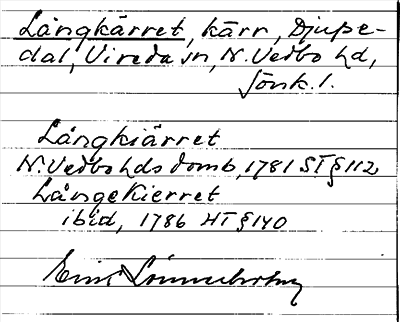 Långkärret, kärr, Djupe-
dal, Vireda sn, N. Vedbo hd,
Jönk. l.
Långkiärret
N. Vedbo hds domb, 1781 ST § 112
Långekierret
ibid, 1786 HT § 140